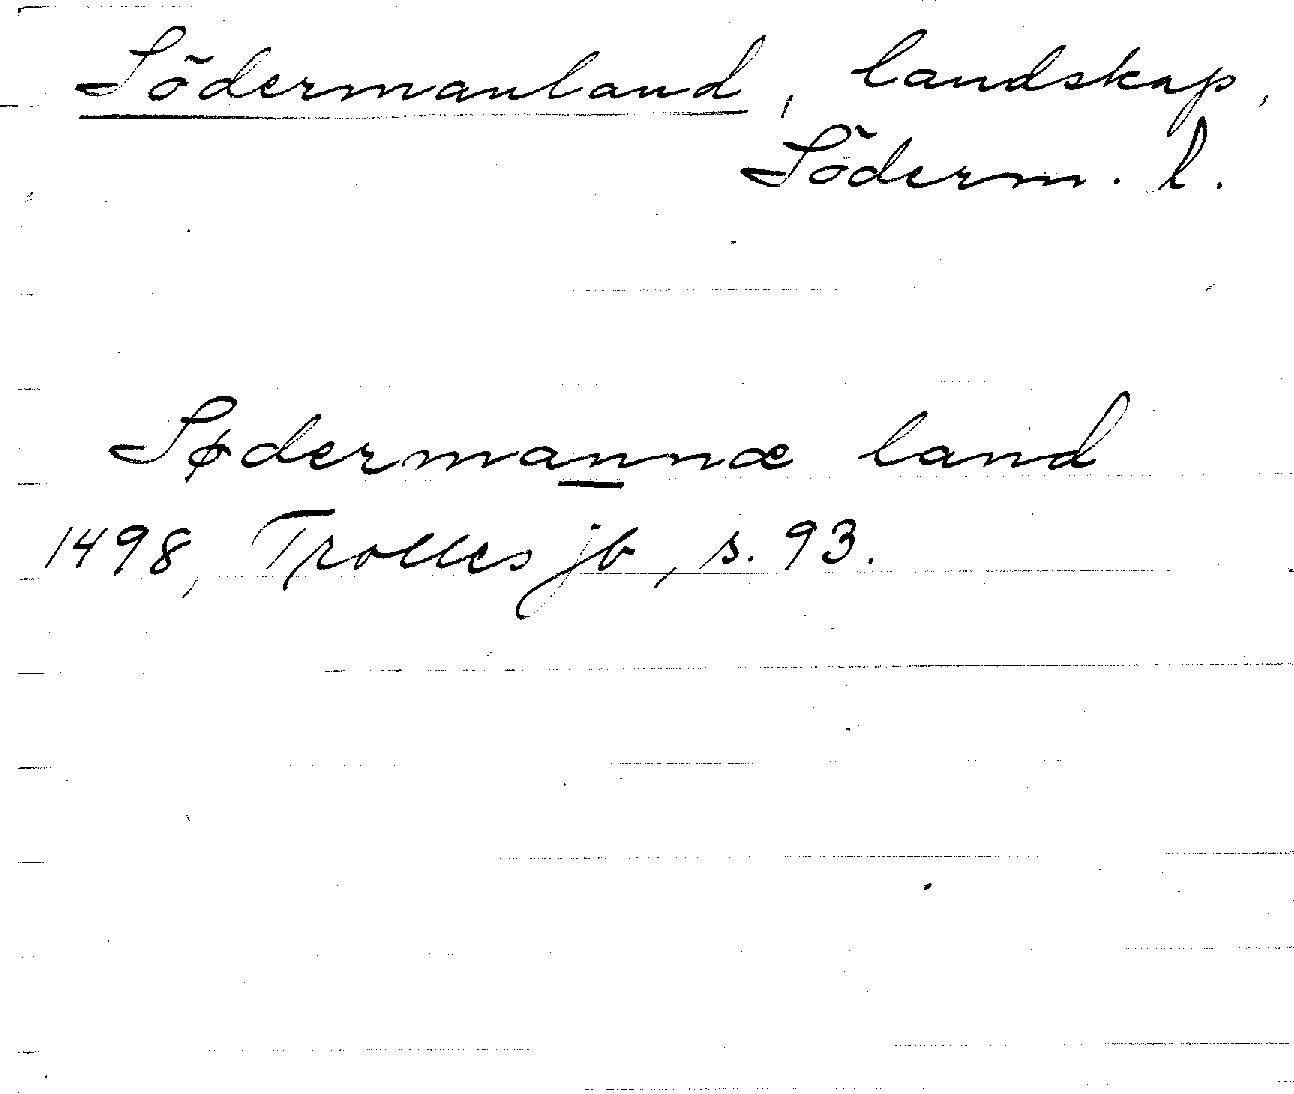 Södermanland, landskap,
Söderm. l.
Sødermannæ land
1498, Trolles jb, s. 93.